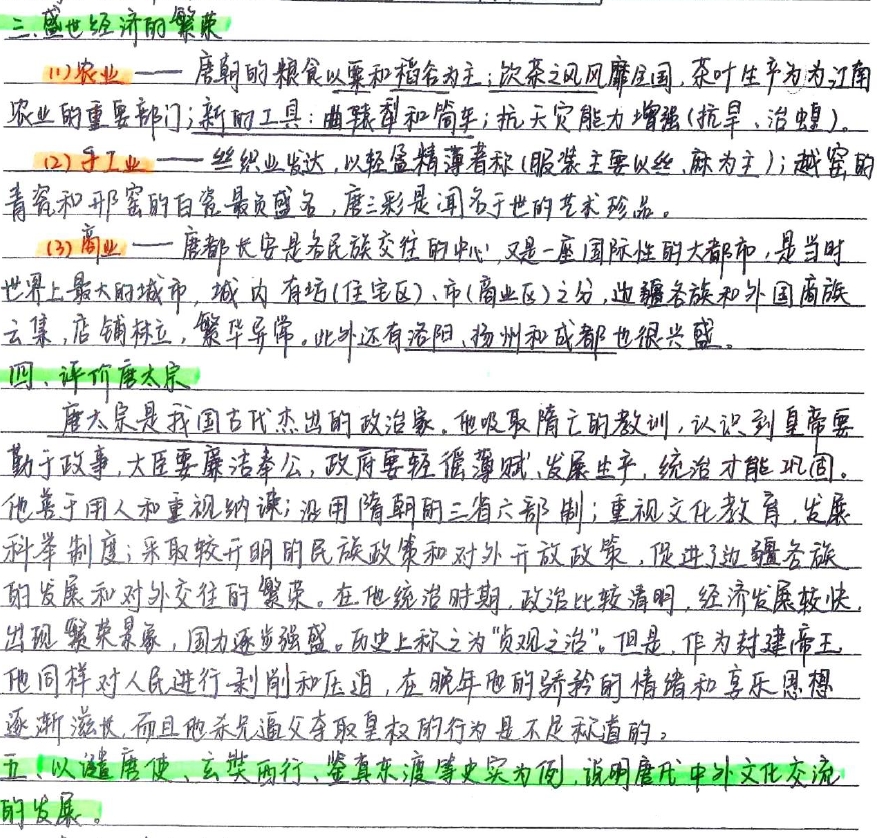 三、盛世经济的繁荣
(1)农业 —— 唐朝的粮食以粟和稻谷为主;饮茶之风风靡全国,茶叶生产为为江南
农业的重要部门;新的工具:曲辕犁和筒车;抗天灾能力增强(抗旱、治蝗)。
(2)手工业 —— 丝织业发达,以轻盈精薄著称(服装主要以丝、麻为主);越窑的
青瓷和邢窑的白瓷最负盛名,唐三彩是闻名于世的艺术珍品。
(3)商业 —— 唐都长安是各民族交往的中心,又是一座国际性的大都市,是当时
世界上最大的城市,城内有坊(住宅区)、市(商业区)之分,边疆各族和外国商族
云集,店铺林立,繁华异常。此外还有洛阳、扬州和成都也很兴盛。
四、评价唐太宗
唐太宗是我国古代杰出的政治家。他吸取隋亡的教训,认识到皇帝要
勤于政事,大臣要廉洁奉公,政府要轻徭薄赋、发展生产,统治才能巩固。
他善于用人和重视纳谏;沿用隋朝的三省六部制;重视文化教育,发展
科举制度;采取较开明的民族政策和对外开放政策,促进了边疆各族
的发展和对外交往的繁荣。在他统治时期,政治比较清明,经济发展较快,
出现繁荣景象,国力逐步强盛。历史上称之为“贞观之治”。但是,作为封建帝王
他同样对人民进行剥削和压迫,在晚年他的骄矜的情绪和享乐思想
逐渐滋长,而且他杀兄逼父夺取皇权的行为是不足称道的。
五、以遣唐使、玄奘西行、鉴真东渡等史实为例,说明唐代中外文化交流
的发展。